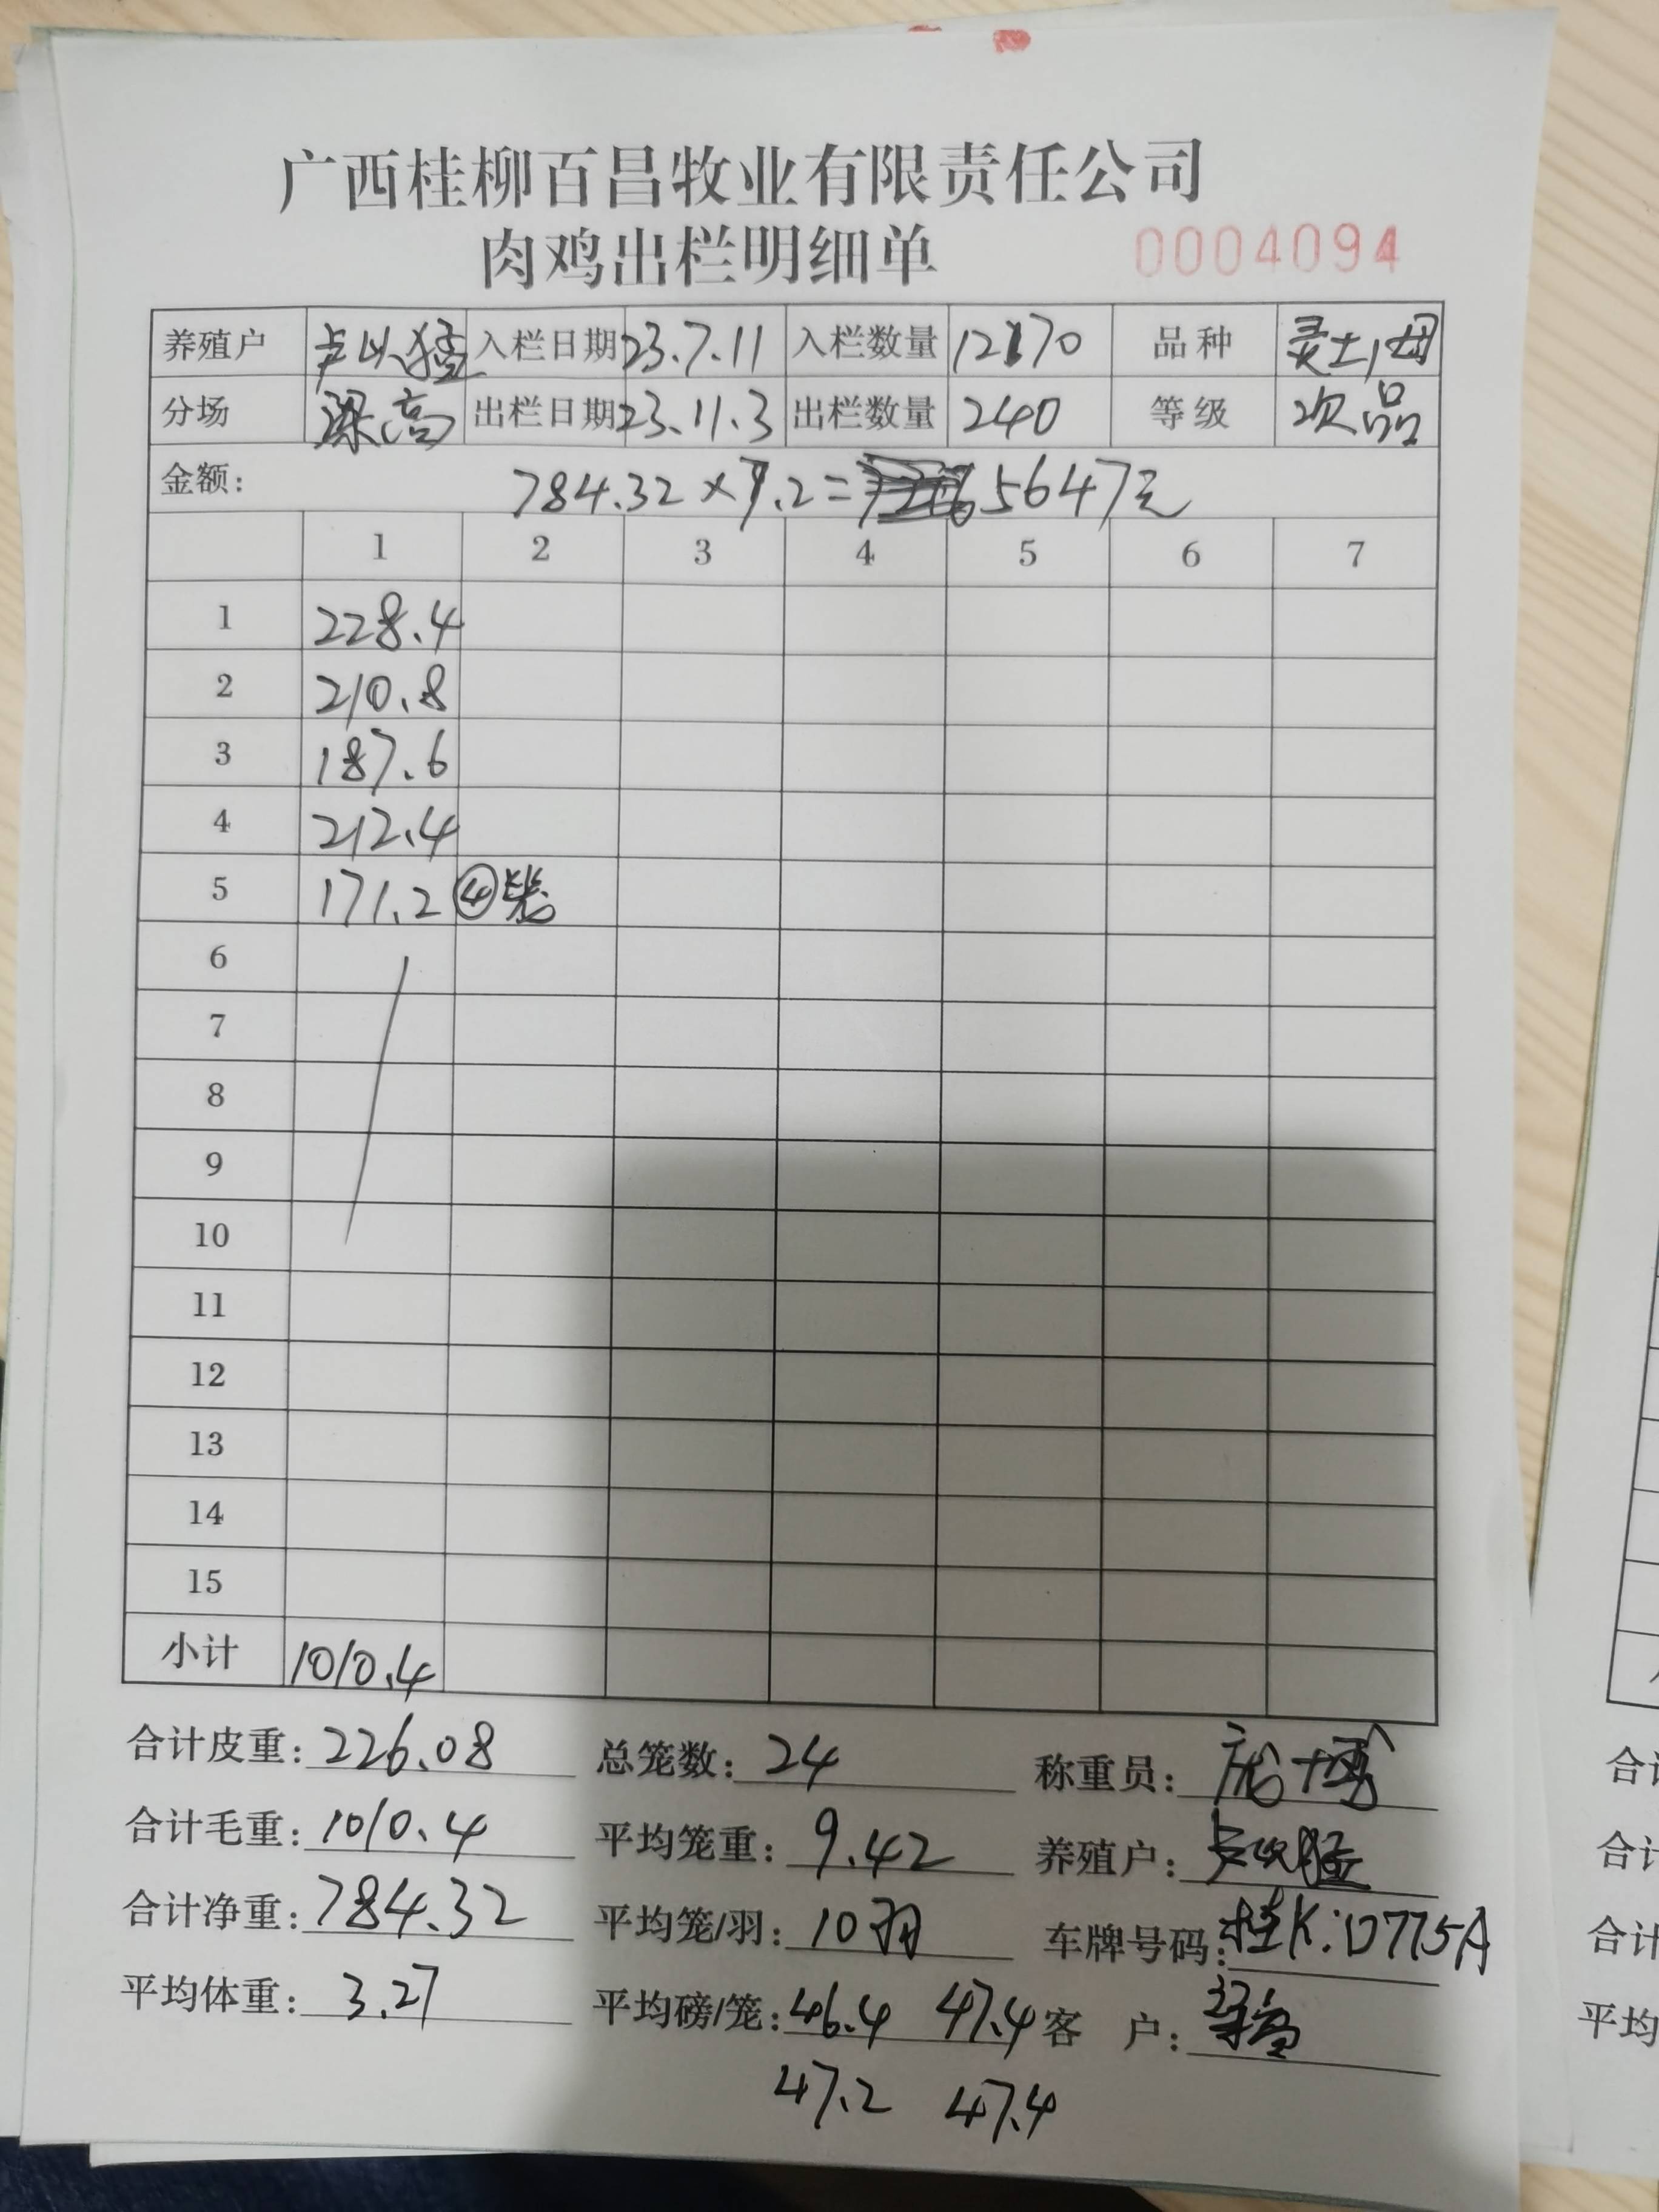 广西桂柳百昌牧业有限责任公司
肉鸡出栏明细单 0004094
养殖户 卢以猛 入栏日期 23.7.11 入栏数量 12170 品种 灵土1母
分场 梁高 出栏日期 23.11.3 出栏数量 240 等级 次品
金额: 784.32×7.2= 5647元
1 2 3 4 5 6 7
1 228.4
2 210.8
3 187.6
4 212.4
5 171.2 ④笼
6
7
8
9
10
11
12
13
14
15
小计 1010.4
合计皮重: 226.08 总笼数: 24 称重员:
合计毛重: 1010.4 平均笼重: 9.42 养殖户: 卢以猛
合计净重: 784.32 平均笼/羽: 10羽 车牌号码: 桂K:D775A
平均体重: 3.27 平均磅/笼: 46.4 47.4 客 户:
47.2 47.4
合计
合计
合计
平均